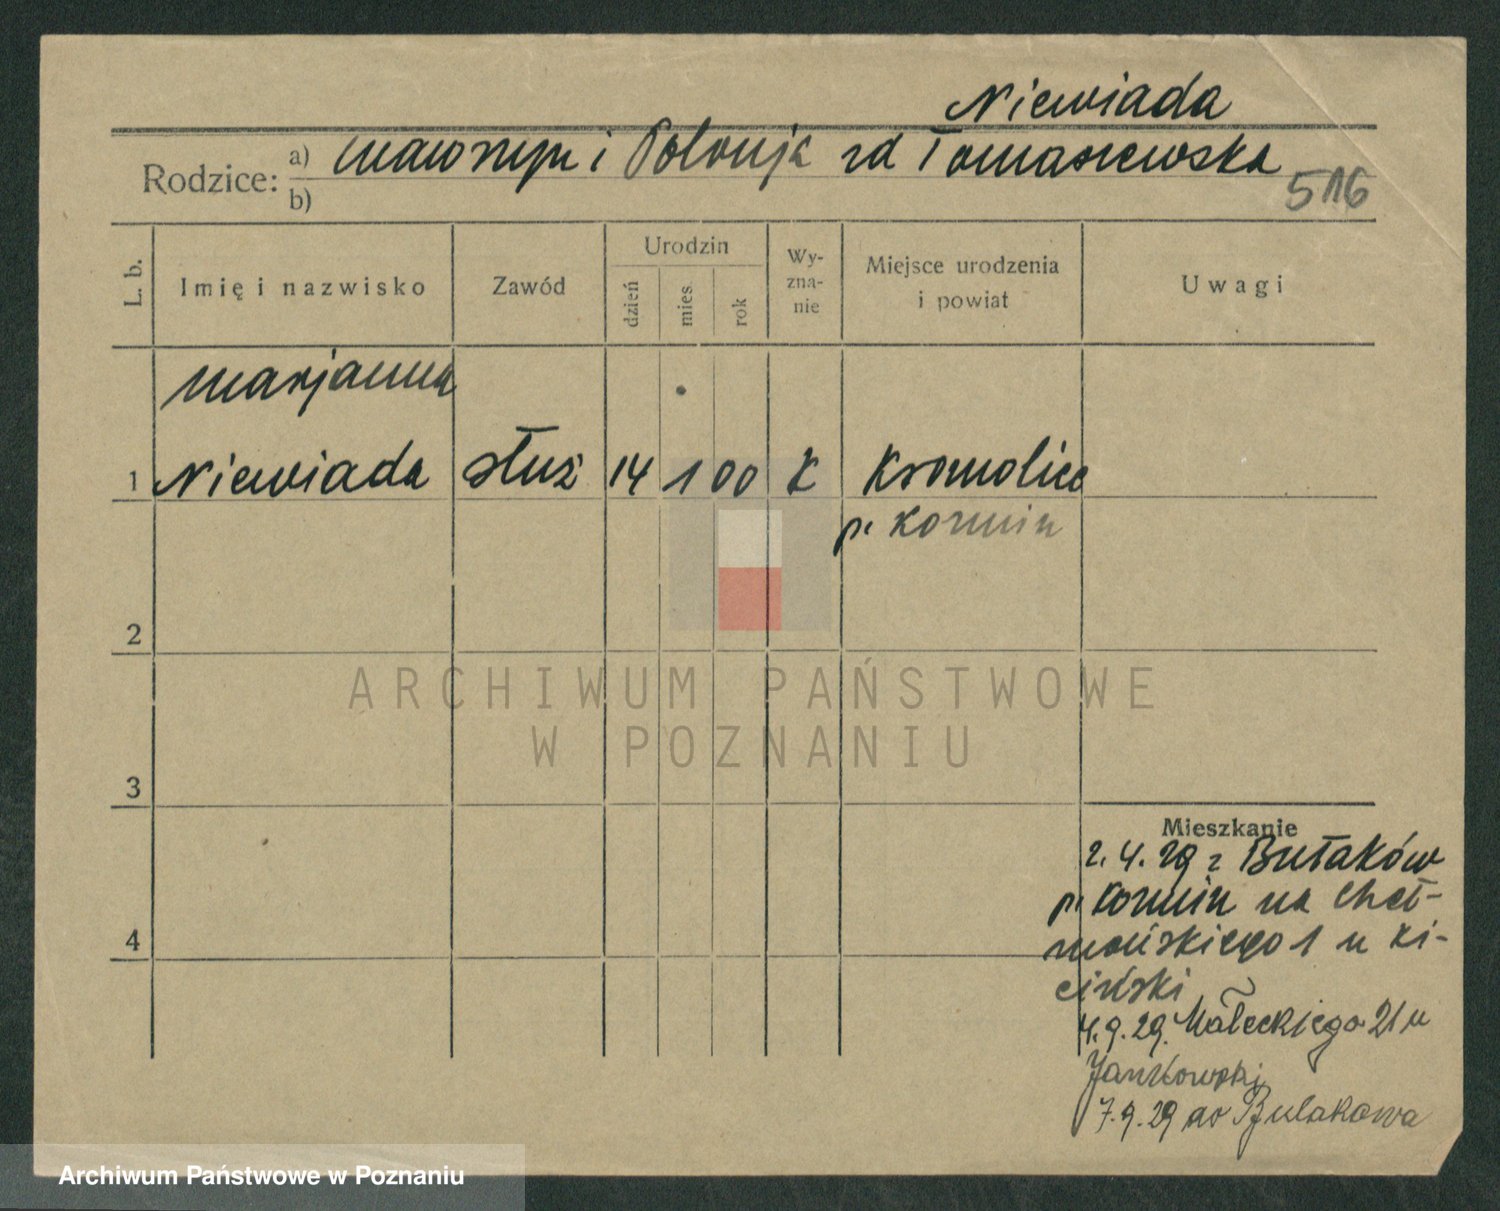 Niewiada
Rodzice: a) Wawrzyn i Polonja zd Tomaszewska
b)
516
L. b.
Imię i nazwisko
Zawód
Urodzin
dzień
mies.
rok
Wy-
zna-
nie
Miejsce urodzenia
i powiat
Uwagi
Marjanna
1 Niewiada służ 14 1 00 k Kromolice
p. Kozmin
2
ARCHIWUM PAŃSTWOWE
W POZNANIU
3
4
Mieszkanie
2.4.29 z Bułaków
p. Kozmin na Cheł-
mońskiego 1 u Ki-
ciński
4.9.29. Małeckiego 21 u
Jankowski
7.9.29 do Bułakowa
Archiwum Państwowe w Poznaniu